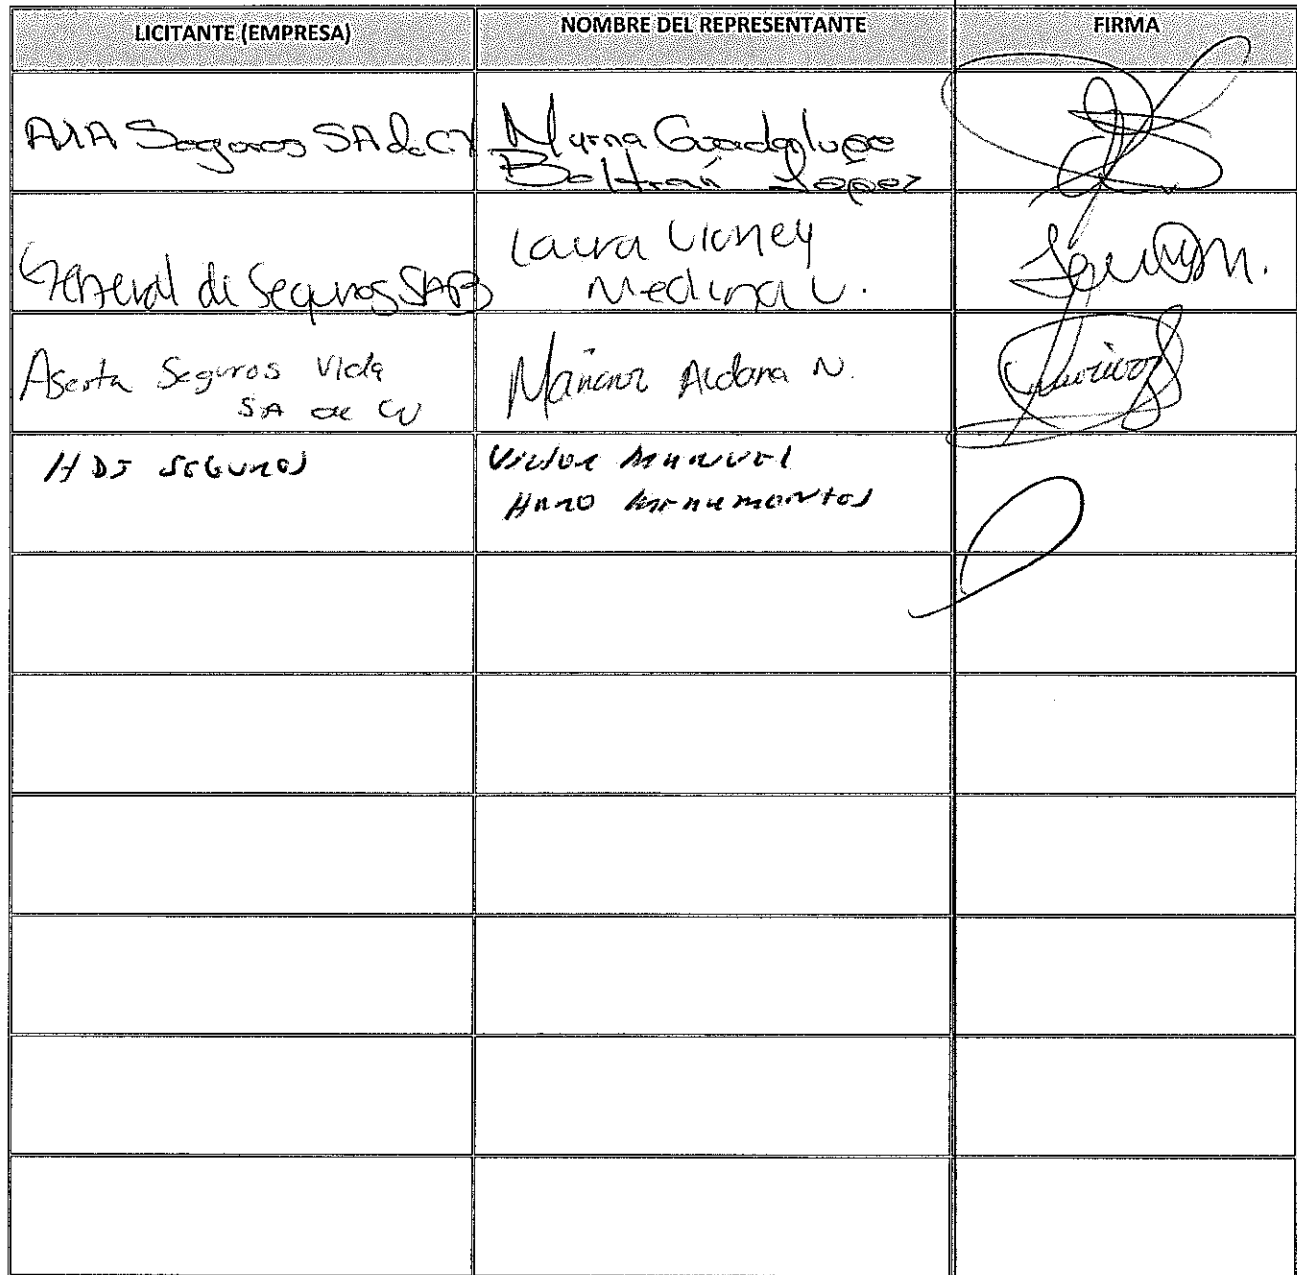 LICITANTE (EMPRESA)
NOMBRE DEL REPRESENTANTE
FIRMA
AXA Seguros SA de CV
Myrna Guadalupe
Beltrán López
General de Seguros SAB
Laura Vianey
Medina U.
Aserta Seguros Vida
SA de CV
Aldana N.
HDI SEGUROS
Victor Manuel
Haro